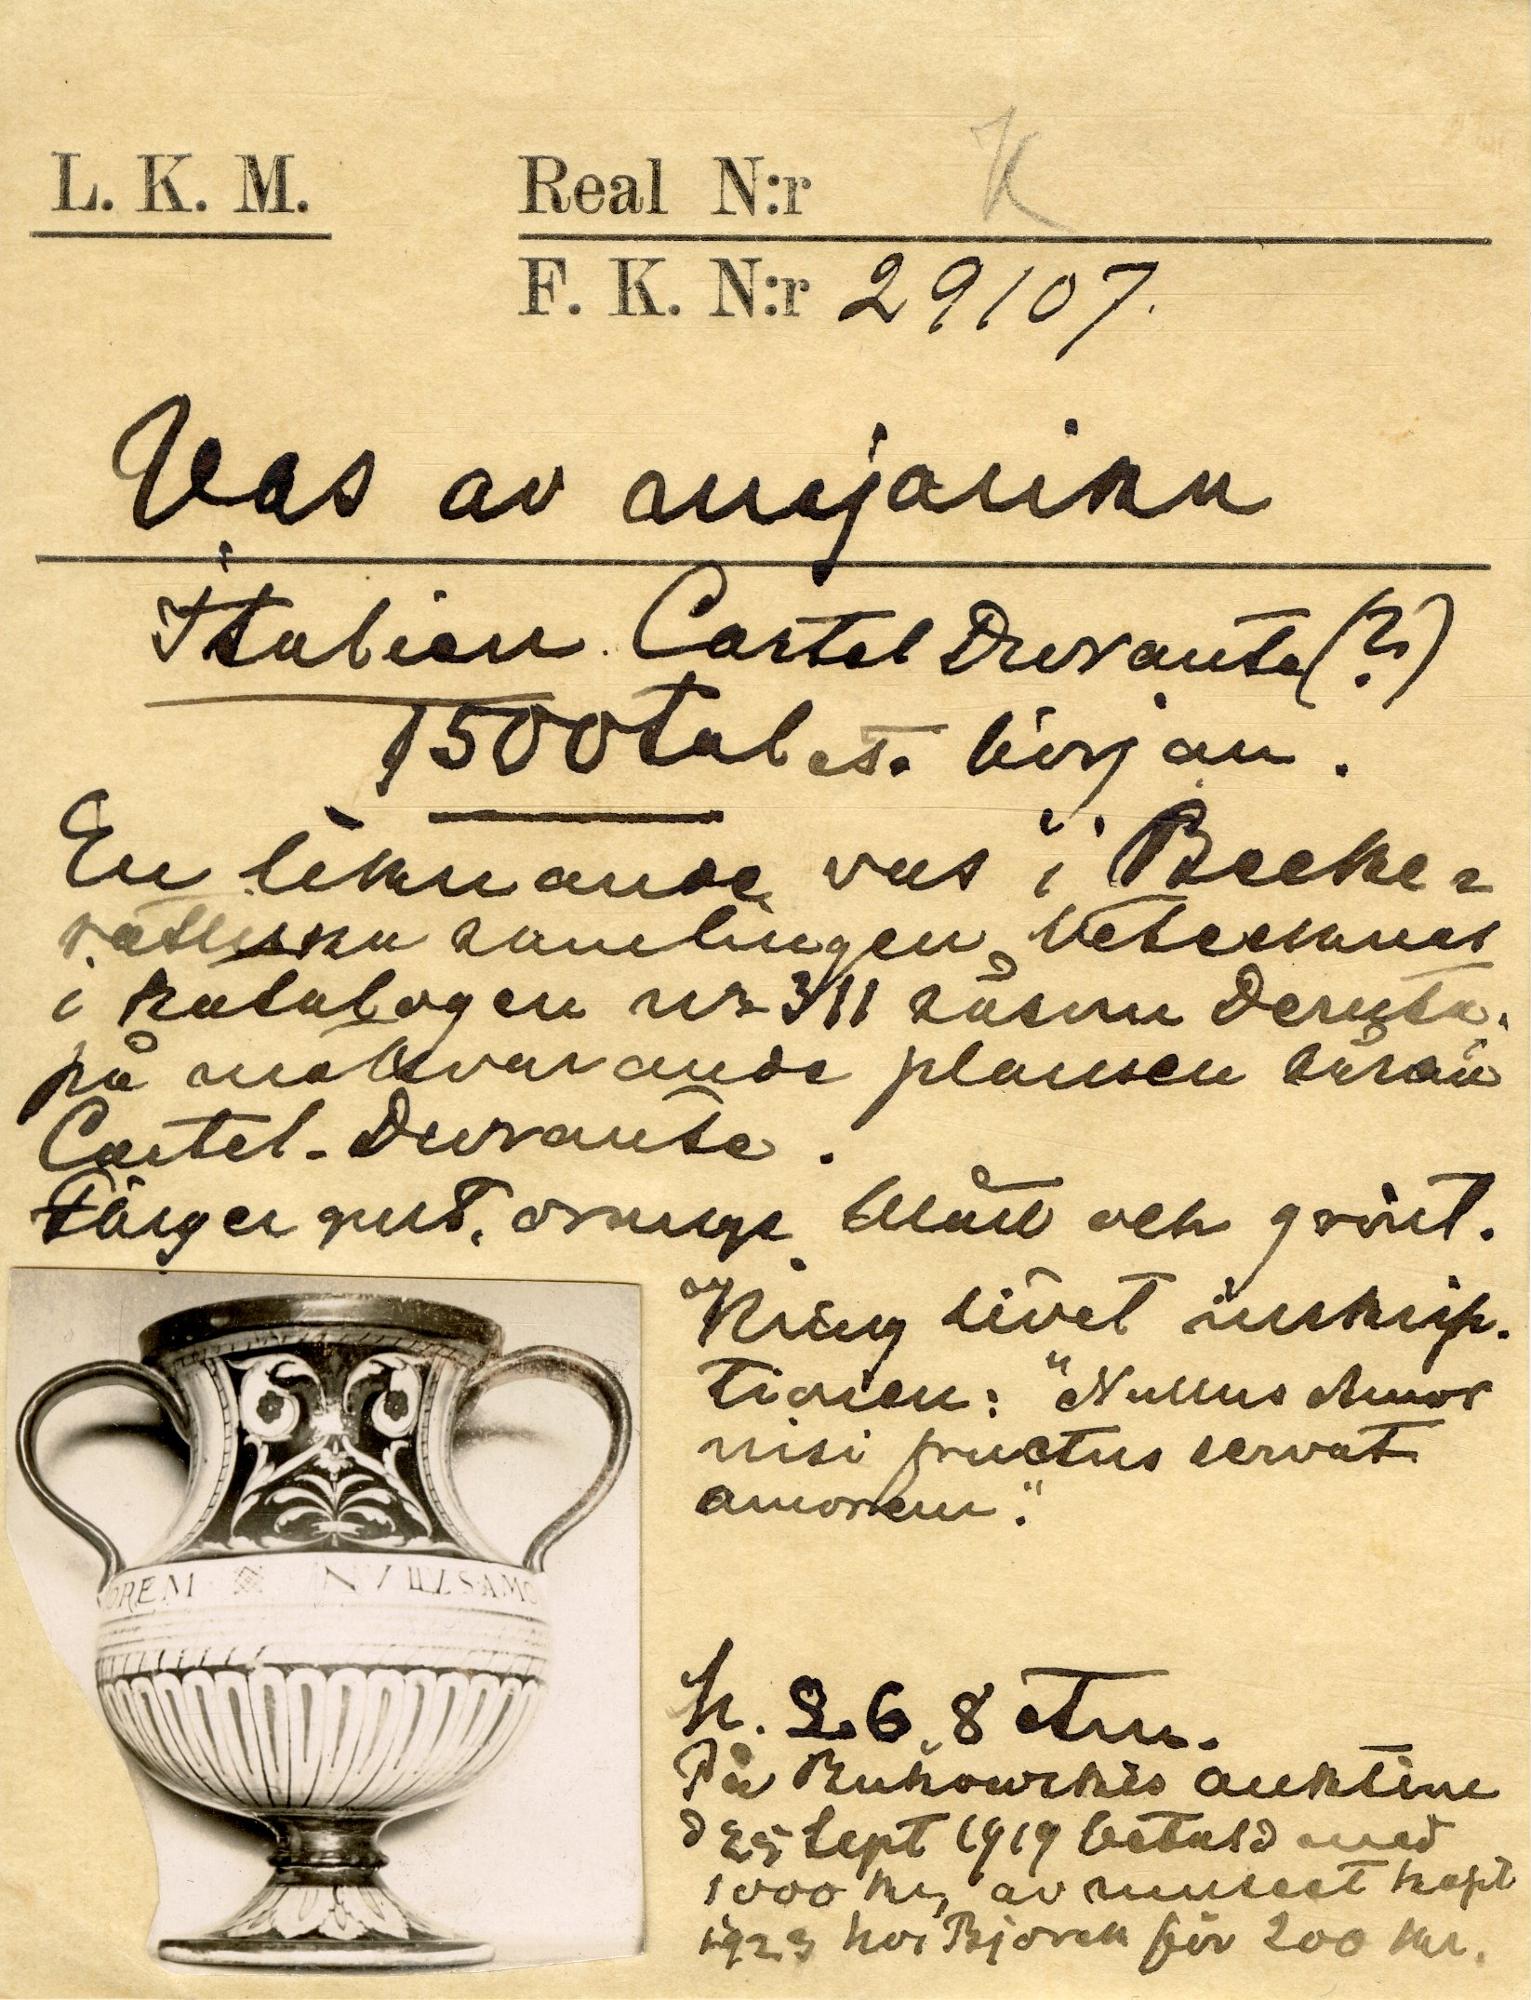 L. K. M. Real N:r K
F. K. N:r 29107.
Vas av majolika
Italien. Castel Durante (?)
1500talets början.
En liknande vas i Becke-
rathska samlingen, betecknas
i katalogen nr 311 såsom Deruta,
på motsvarande planschen såsom
Castel-Durante.
Färger gult, orange, blått och grönt.
Kring livet inskrip-
tionen: "Nullus Amor
nisi fructus servat
amorem".
OREM NVLLVS AMO
H. 26,8 cm.
På Bukowskis auktion
d 25 Sept 1919 betald med
1000 kr, av museet köpt
1923 hos Björck för 200 kr.